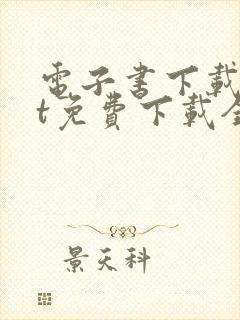 電子書下載
t免費下載全
景天科